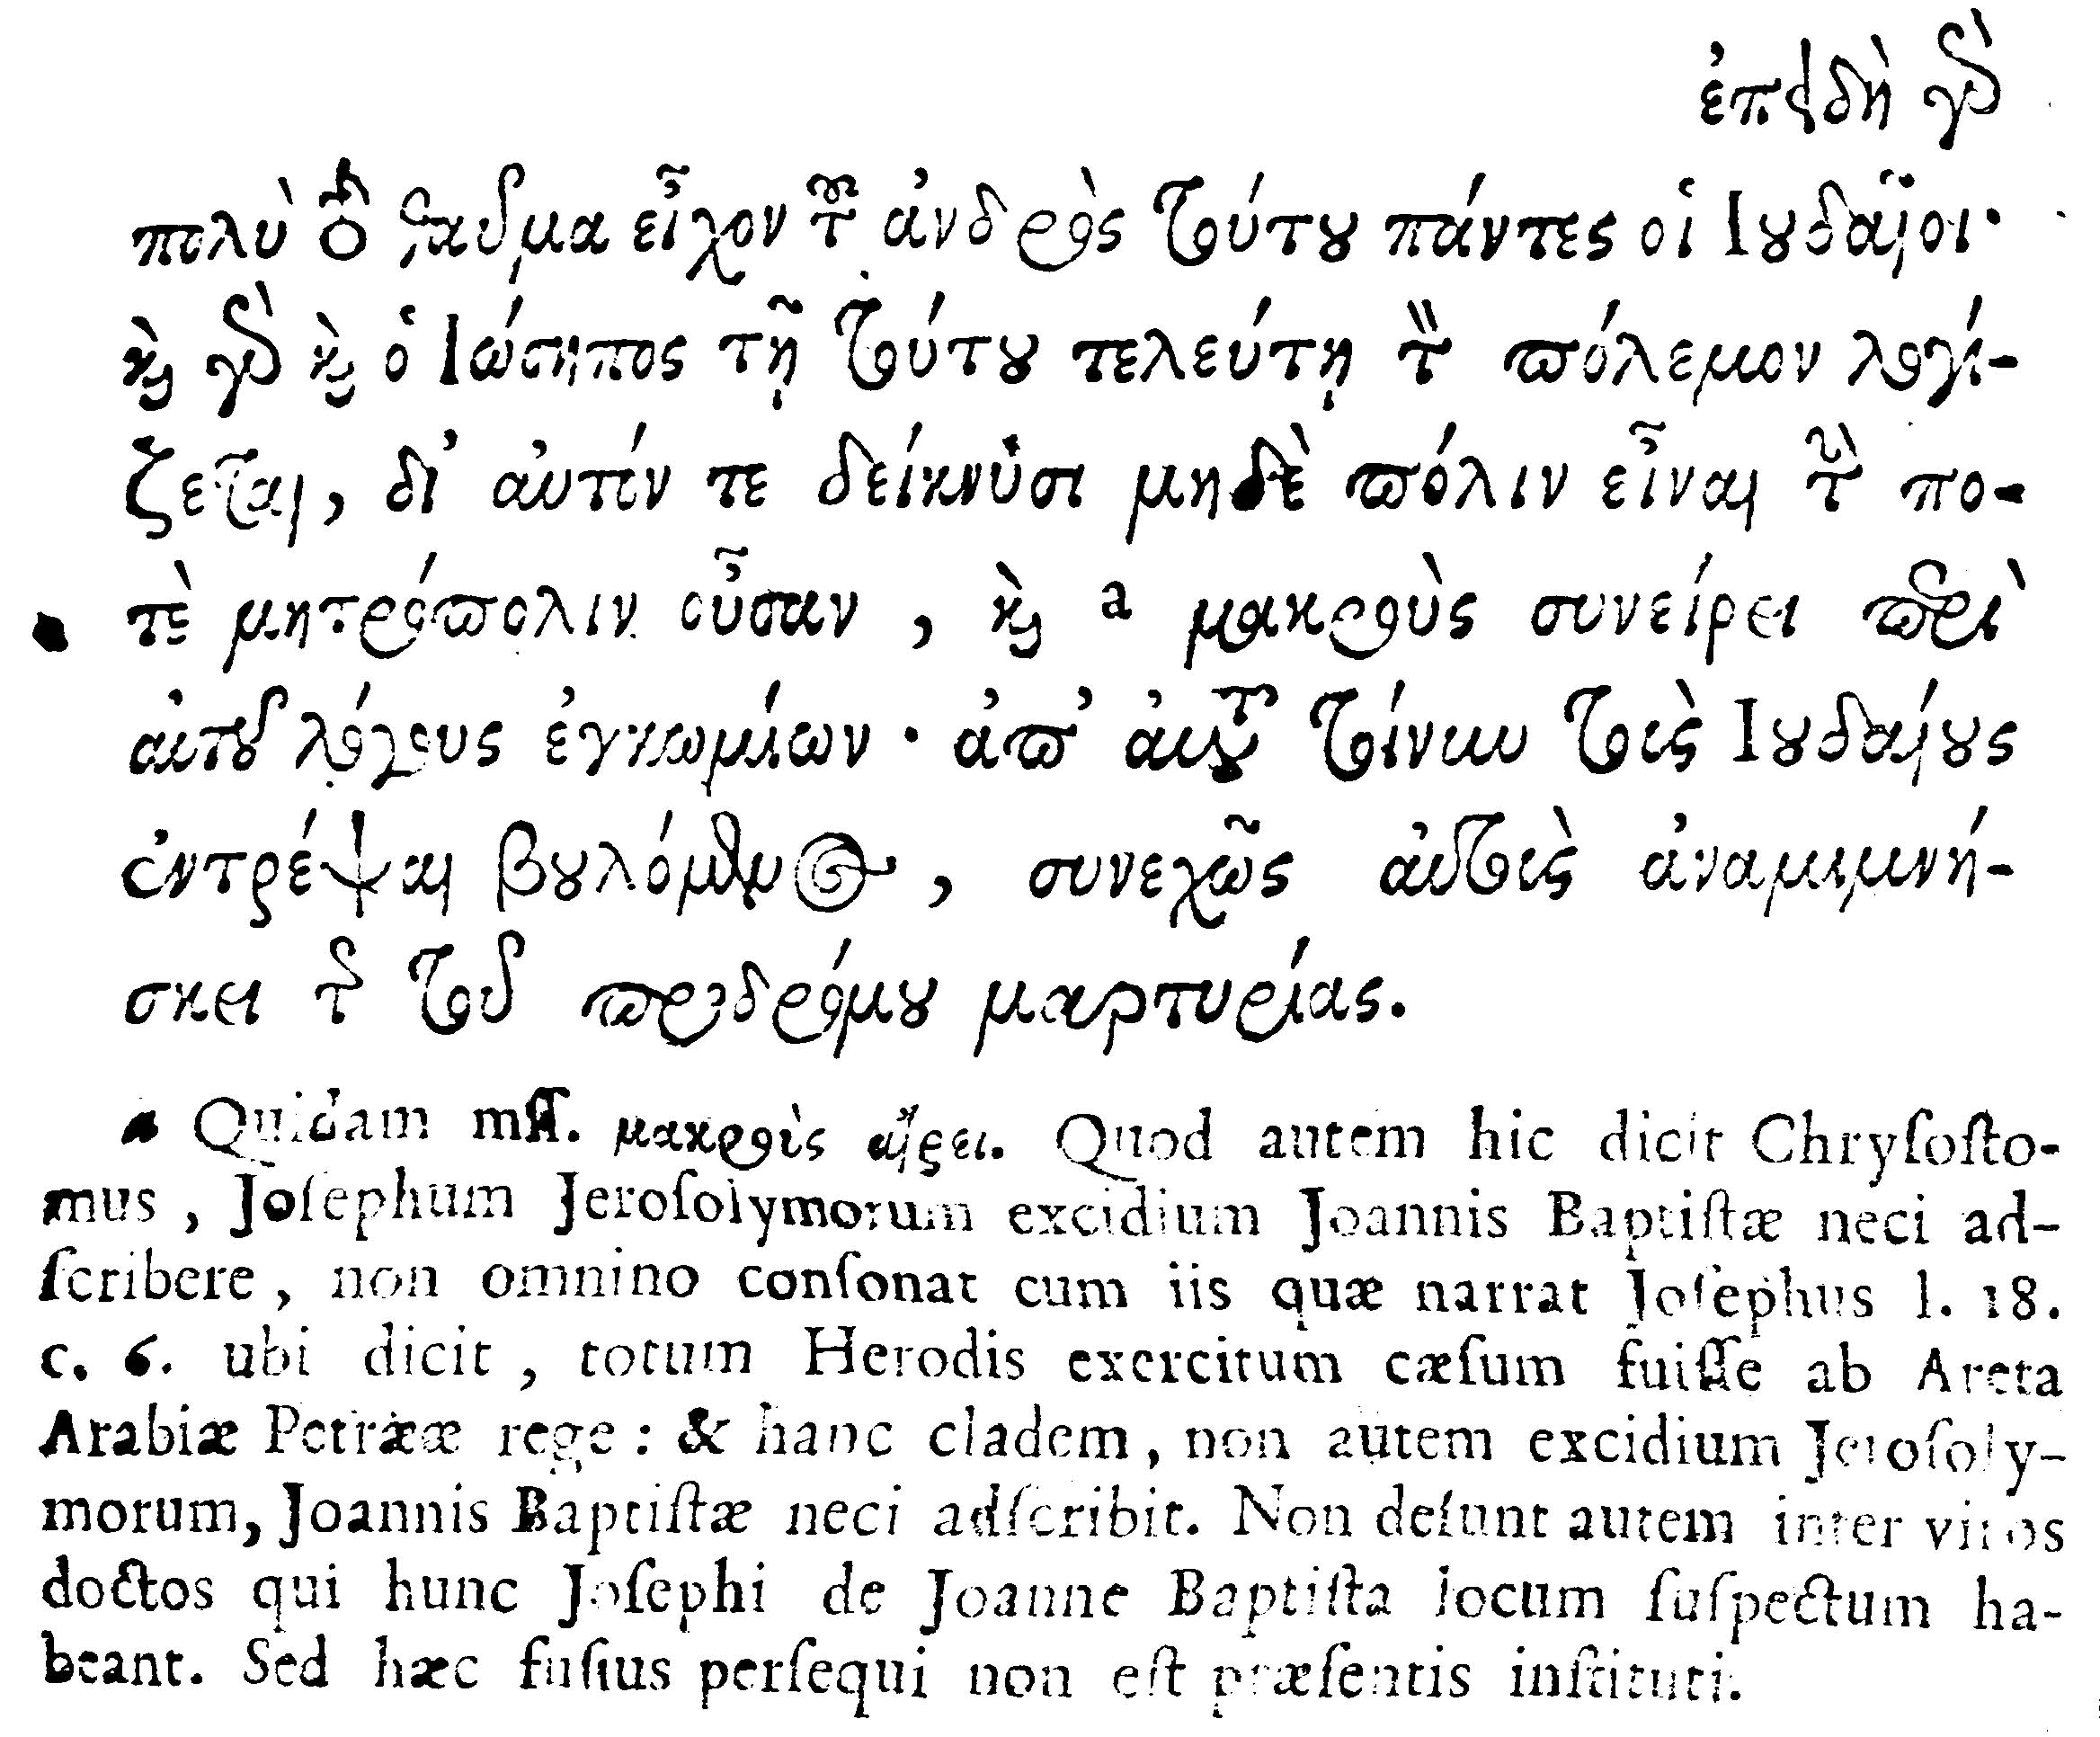 ἐπειδὴ γὰρ
πολὺ τὸ θαῦμα εἶχον τοῦ ἀνδρὸς τούτου πάντες οἱ Ἰουδαῖοι·
καὶ γὰρ καὶ ὁ Ἰώσηπος τῇ τούτου τελεύτῃ τὸν πόλεμον λογί-
ζεται, δι' αὐτόν τε δείκνυσι μηδὲ πόλιν εἶναι τὴν πο-
τὲ μητρόπολιν οὖσαν, καὶ a μακροὺς συνείρει περὶ
αὐτοῦ λόγους ἐγκωμίων· ἀπ' αὐτῶν τοίνυν τοὺς Ἰουδαίους
ἐντρέψαι βουλόμενος, συνεχῶς αὐτοὺς ἀναμιμνή-
σκει τῆς τοῦ προδρόμου μαρτυρίας.
a Quidam mſſ. μακροὺς αἴρει. Quod autem hic dicit Chryſoſto-
mus, Joſephum Jeroſolymorum excidium Joannis Baptiſtæ neci ad-
ſcribere, non omnino conſonat cum iis quæ narrat Joſephus l. 18.
c. 6. ubi dicit, totum Herodis exercitum cæſum fuiſſe ab Areta
Arabiæ Petrææ rege: & hanc cladem, non autem excidium Jeroſoly-
morum, Joannis Baptiſtæ neci adſcribit. Non deſunt autem inter viros
doctos qui hunc Joſephi de Joanne Baptiſta locum ſuſpectum ha-
beant. Sed hæc fuſius perſequi non eſt præſentis inſtituti.